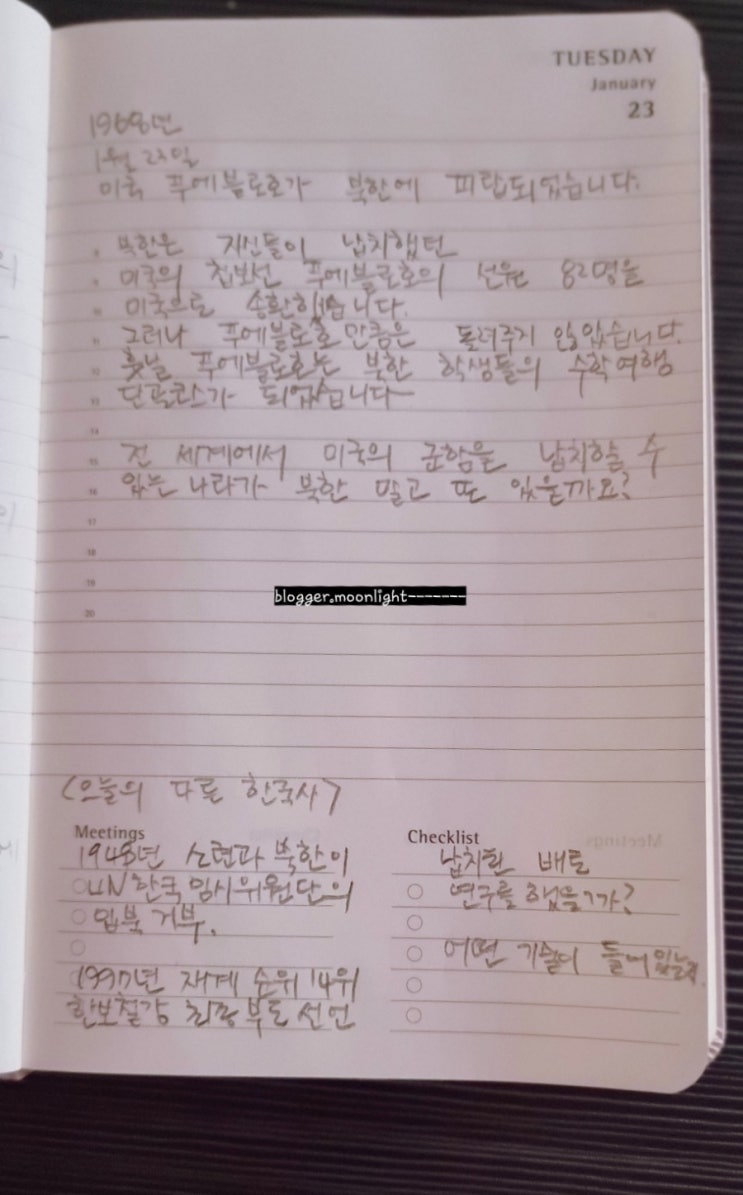 TUESDAY
January
23
1968년
1월 23일
미국 푸에블로호가 북한에 피랍되었습니다.
9 북한은 자신들이 납치했던
미국의 첩보선 푸에블로호의 선원 82명을
10 미국으로 송환했습니다.
11 그러나 푸에블로호만큼은 돌려주지 않았습니다.
12 훗날 푸에블로호는 북한 학생들의 수학여행
13 단골코스가 되었습니다
14
15 전 세계에서 미국의 군함을 납치할 수
16 있는 나라가 북한 말고 또 있을까요?
17
18
19
blogger.moonlight-------
20
<오늘의 다른 한국사>
Meetings
1948년 소련과 북한이
UN한국임시위원단의
입북 거부.
1997년 재계 순위 14위
한보철강 최종 부도 선언
Checklist
납치한 배로
연구를 했을가?
어떤 기술이 들어있는지.